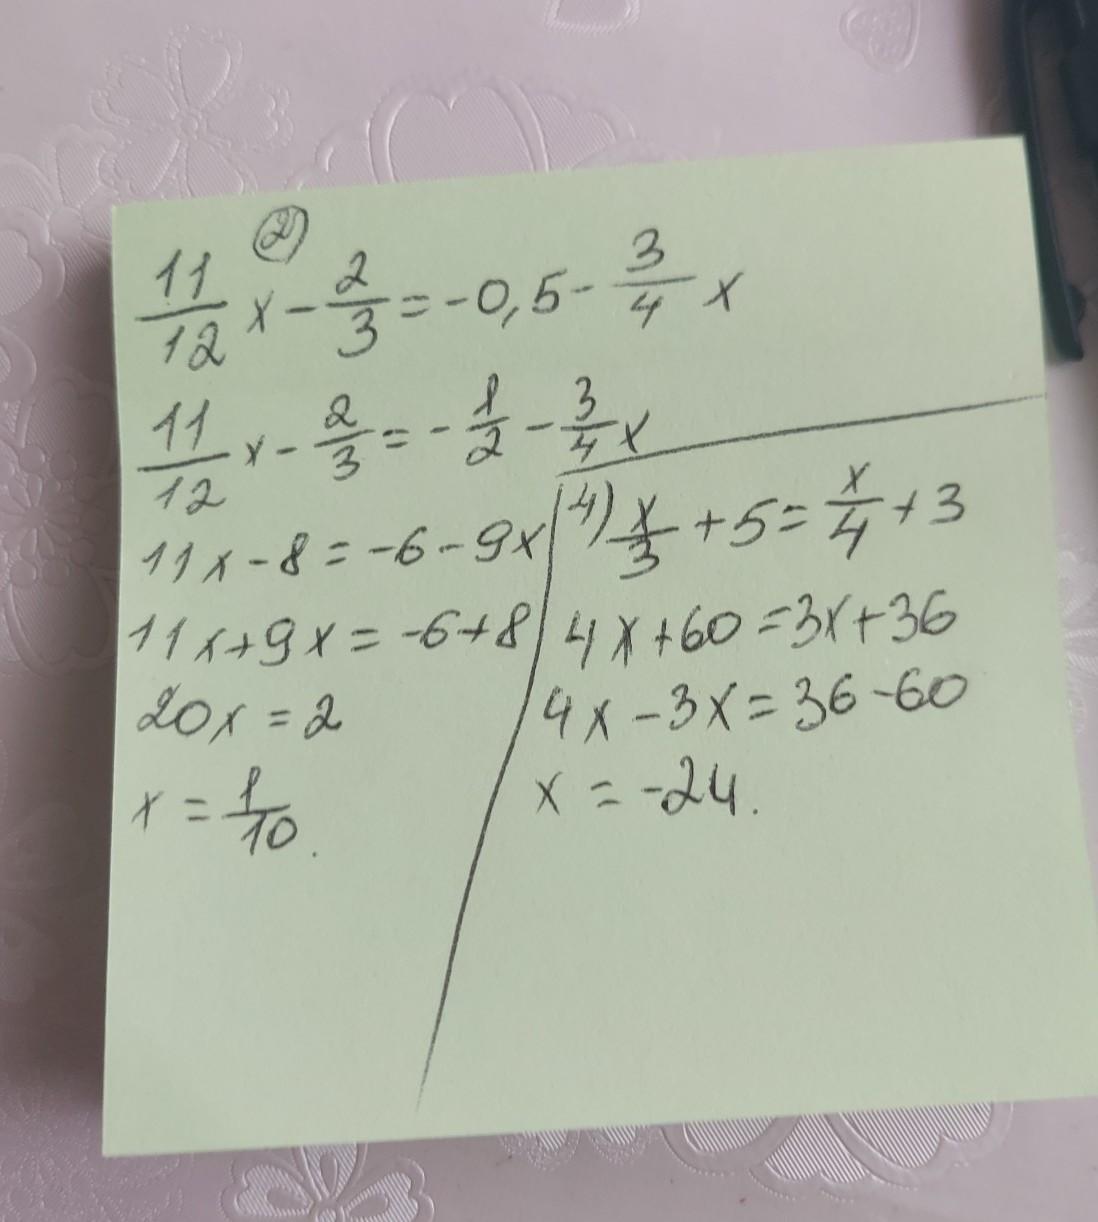 ②
11/12 x - 2/3 = -0,5 - 3/4 x
11/12 x - 2/3 = - 1/2 - 3/4 x
11x - 8 = -6 - 9x
11x + 9x = -6 + 8
20x = 2
x = 1/10.
4) x/3 + 5 = x/4 + 3
4x + 60 = 3x + 36
4x - 3x = 36 - 60
x = -24.